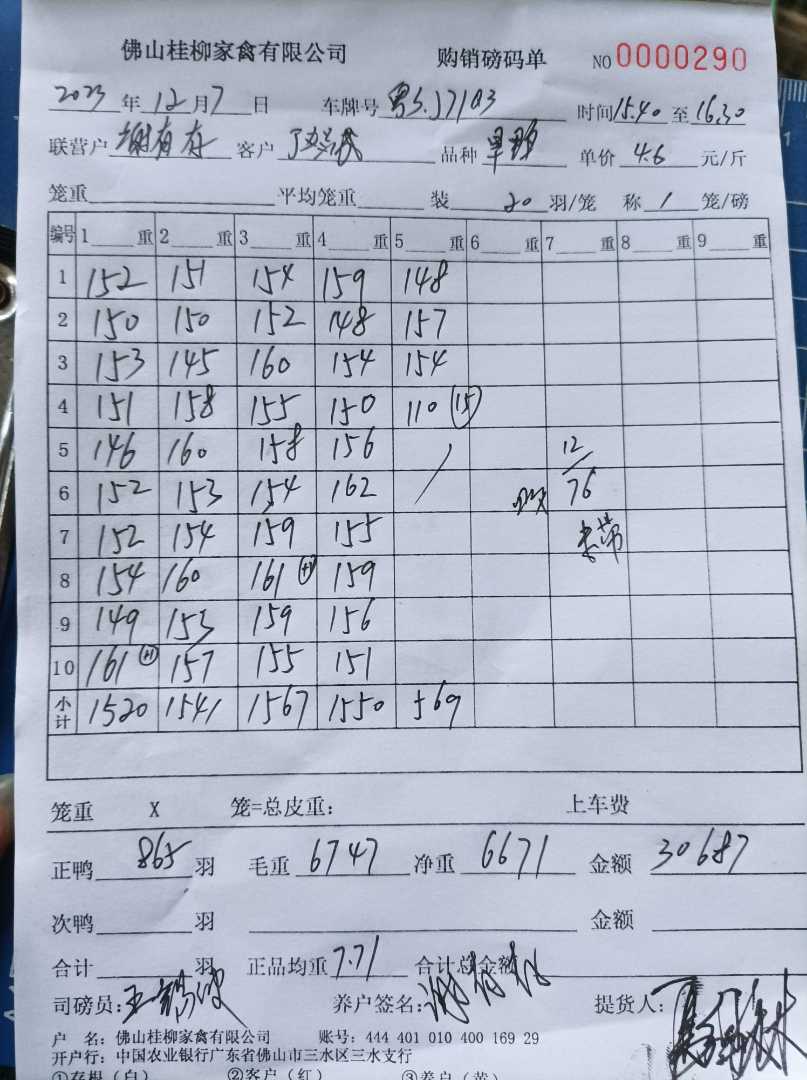 佛山桂柳家禽有限公司 购销磅码单 NO 0000290
2023 年 12 月 7 日 车牌号 粤S.J71A3 时间 15.40 至 16.30
联营户 谢有存 客户 品种 单价 4.6 元/斤
笼重 平均笼重 装 20 羽/笼 称 1 笼/磅
编号 1 重 2 重 3 重 4 重 5 重 6 重 7 重 8 重 9 重
1 152 151 154 159 148
2 150 150 152 148 157
3 153 145 160 154 154
4 151 158 155 150 110 (15)
5 146 160 158 156 / 12
6 152 153 154 162 76
7 152 154 159 155
8 154 160 161 (+1) 159
9 149 153 159 156
10 161 (+1) 157 155 151
小计 1520 1541 1567 1550 569
笼重 X 笼=总皮重: 上车费
正鸭 865 羽 毛重 6747 净重 6671 金额 30687
次鸭 羽 金额
合计 羽 正品均重 7.71 合计总金额
司磅员: 养户签名: 提货人:
户 名: 佛山桂柳家禽有限公司 账号: 444 401 010 400 169 29
开户行: 中国农业银行广东省佛山市三水区三水支行
①存根(白) ②客户(红) ③养户(黄)